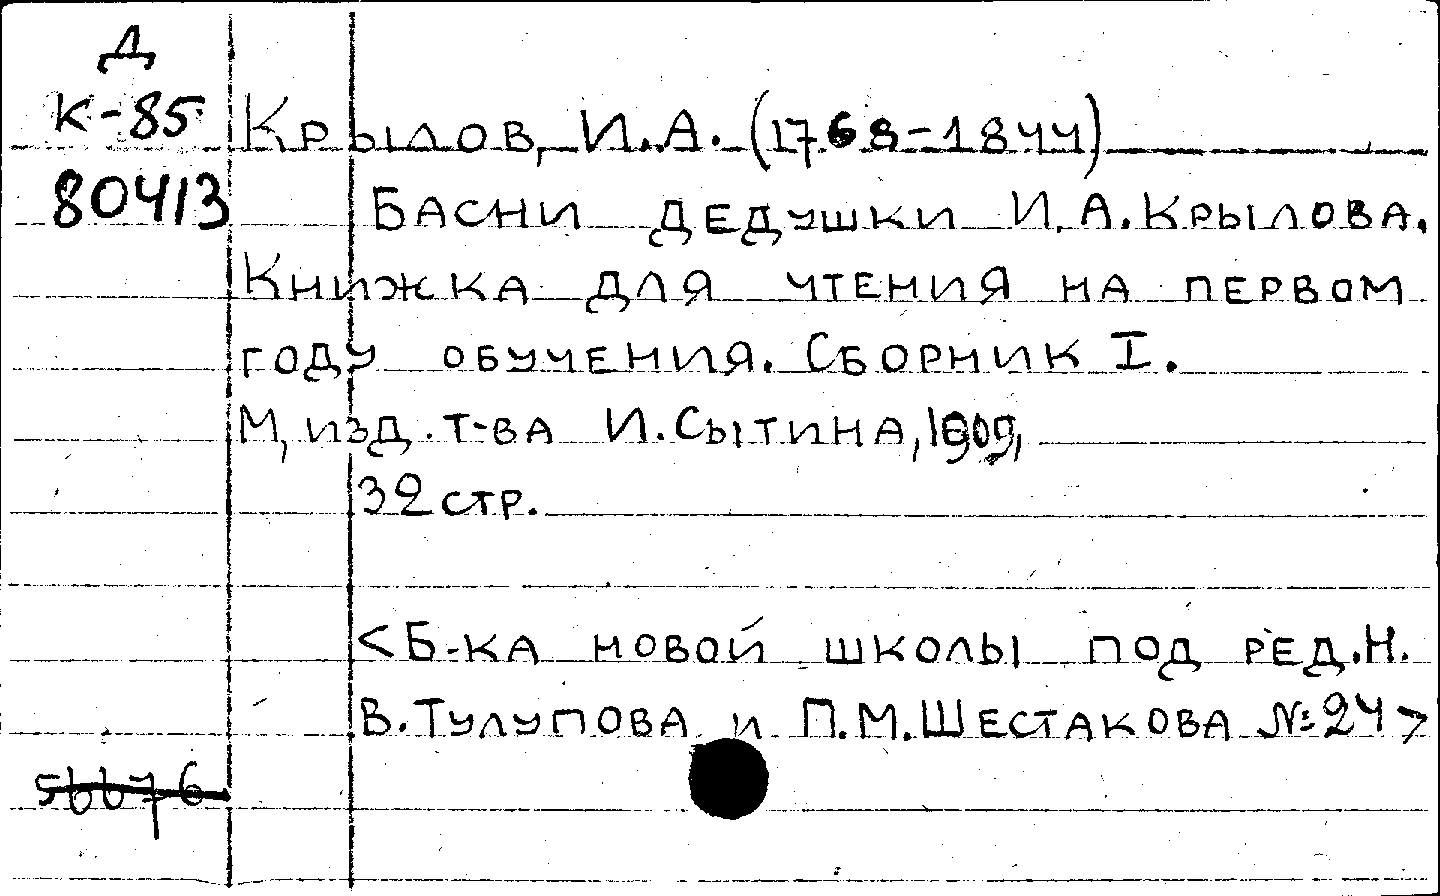 Д
К-85
Крылов, И.А. (1768-1844)
80413
Басни дедушки И.А.Крылова.
Книжка для чтения на первом
году обучения. Сборник I.
М, изд. т-ва И.Сытина, 1909,
32 стр.
<Б-ка новой школы под ред.Н.
В.Тулупова и П.М.Шестакова №24>